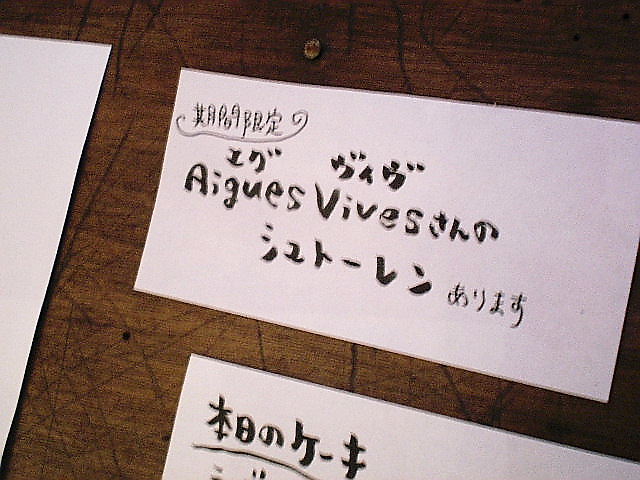 期間限定
エグ ヴィヴ
Aigues Vivesさんの
シュトーレン あります
本日のケーキ